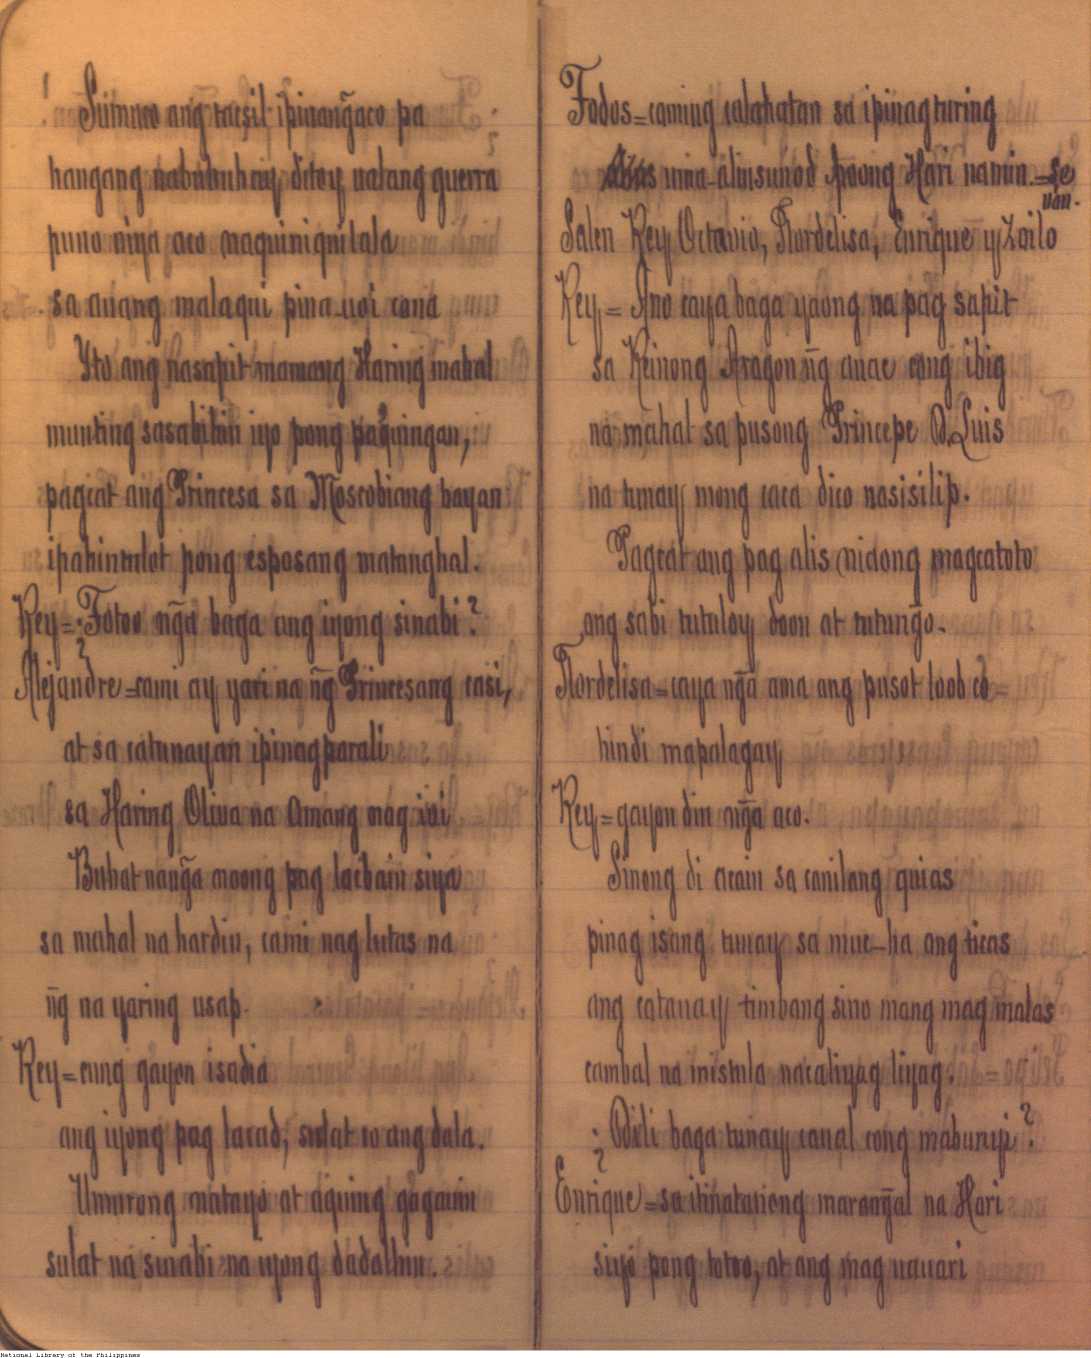 Sumuco ang tacsil ipinangaco pa
hangang nabubuhay ditoy ualang guerra
puno niya aco naquiniquilala
sa auang malaqui pina-uoi cona
Yto ang nasapit mamang Haring mahal
munting sasabihin iyo pong paquingan,
pagcat ang Princesa sa Moscobiang bayan
ipahintulot pong esposang matanghal.
Rey=¿Totoo nga baga ang iyong sinabi?
Alejandre=cami ay yari na n̄g Princesang casi,
at sa catunayan ipinagparali
sa Haring Oliva na Amang nag iui
Buhat nanga moong pag lacbain siya
sa mahal na hardin, cami nag lutas na
n̄g na yaring usap.
Rey=cung gayon isadia
ang iyong pag lacad, sulat co ang dala.
Umurong matayo at aquing gagauin
sulat na sinabi na iyong dadalhin.
Todos=caming calahatan sa ipinag turing
uma-alinsunod Poong Hari namin.=Se
van.
Salen Rey Octavio, Flordelisa, Enrique y Zoilo
Rey= Ano caya baga yaong na pag sapit
sa Reinong Aragon n̄g anac cong ibig
na mahal sa pusong Principe D. Luis
na tunay mong caca dico nasisilip.
Pagcat ang pag alis nidong magcatoto
ang sabi tutuloy doon at tutungo.
Flordelisa=caya nga ama ang pusot loob co=
hindi mapalagay
Rey=gayon din nga aco.
Sinong di acain sa canilang quias
pinag isang tunay sa muc-ha ang ticas
ang catanay timbang sino mang mag malas
cambal na inistula nacaliyag liyag.
¿Dili baga tunay canal cong mabunyi?
Enrique=sa itinatanong marangal na Hari
siya pong totoo, at ang mag uauari
National Library of the Philippines